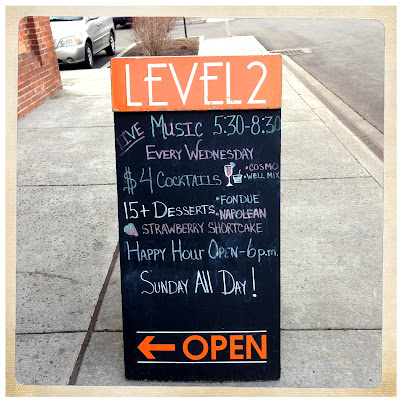 LEVEL2
LIVE MUSIC 5:30-8:30
EVERY WEDNESDAY
$4 COCKTAILS • COSMO
• WELL MIX
15+ DESSERTS • FONDUE
• NAPOLEAN
STRAWBERRY SHORTCAKE
HAPPY HOUR OPEN-6p.m.
SUNDAY All DAY!
← OPEN